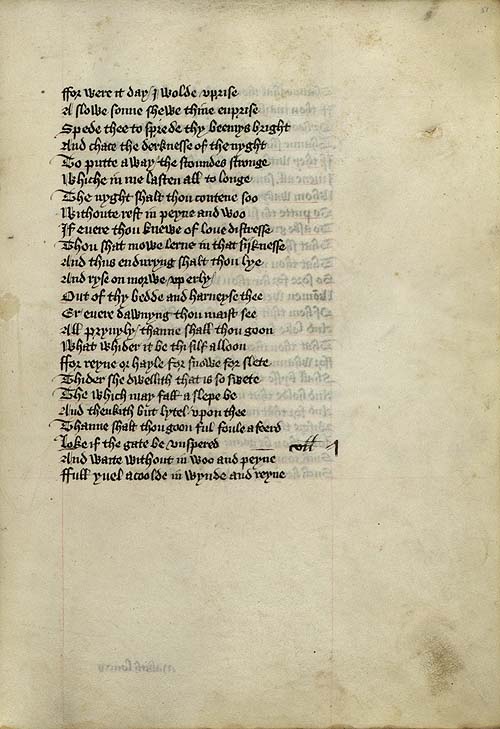 ffor were it day / I wolde / vprise
A slowe sonne shewe thine enprise
Spede thee to sprede thy beemys bright
And chace the derknesse of the nyght
To putte away the stoundes stronge
Whiche in me lasten all to longe
The nyght shalt thou contene soo
Withoute rest in peyne and woo
If evere thou knewe of love distresse
Thou shalt mowe lerne in that sijknesse
And thus enduryng shalt thou lye
And ryse on morwe vp erly /
Out of thy bedde and harneyse thee
Er evere dawnyng thou maist see
All pryuyly / thanne shall thou goon
What whider it be thi silf alloon
ffor reyne or hayle for snowe for slete
Thider she dwellith that is so swete
The which may fall a slepe be
And thenkith but lytel vpon thee
Thanne shalt thou goon ful foule a feerd
Loke if the gate be vnspered
And waite without in woo and peyne
ffull yuel acoolde in wynde and reyne